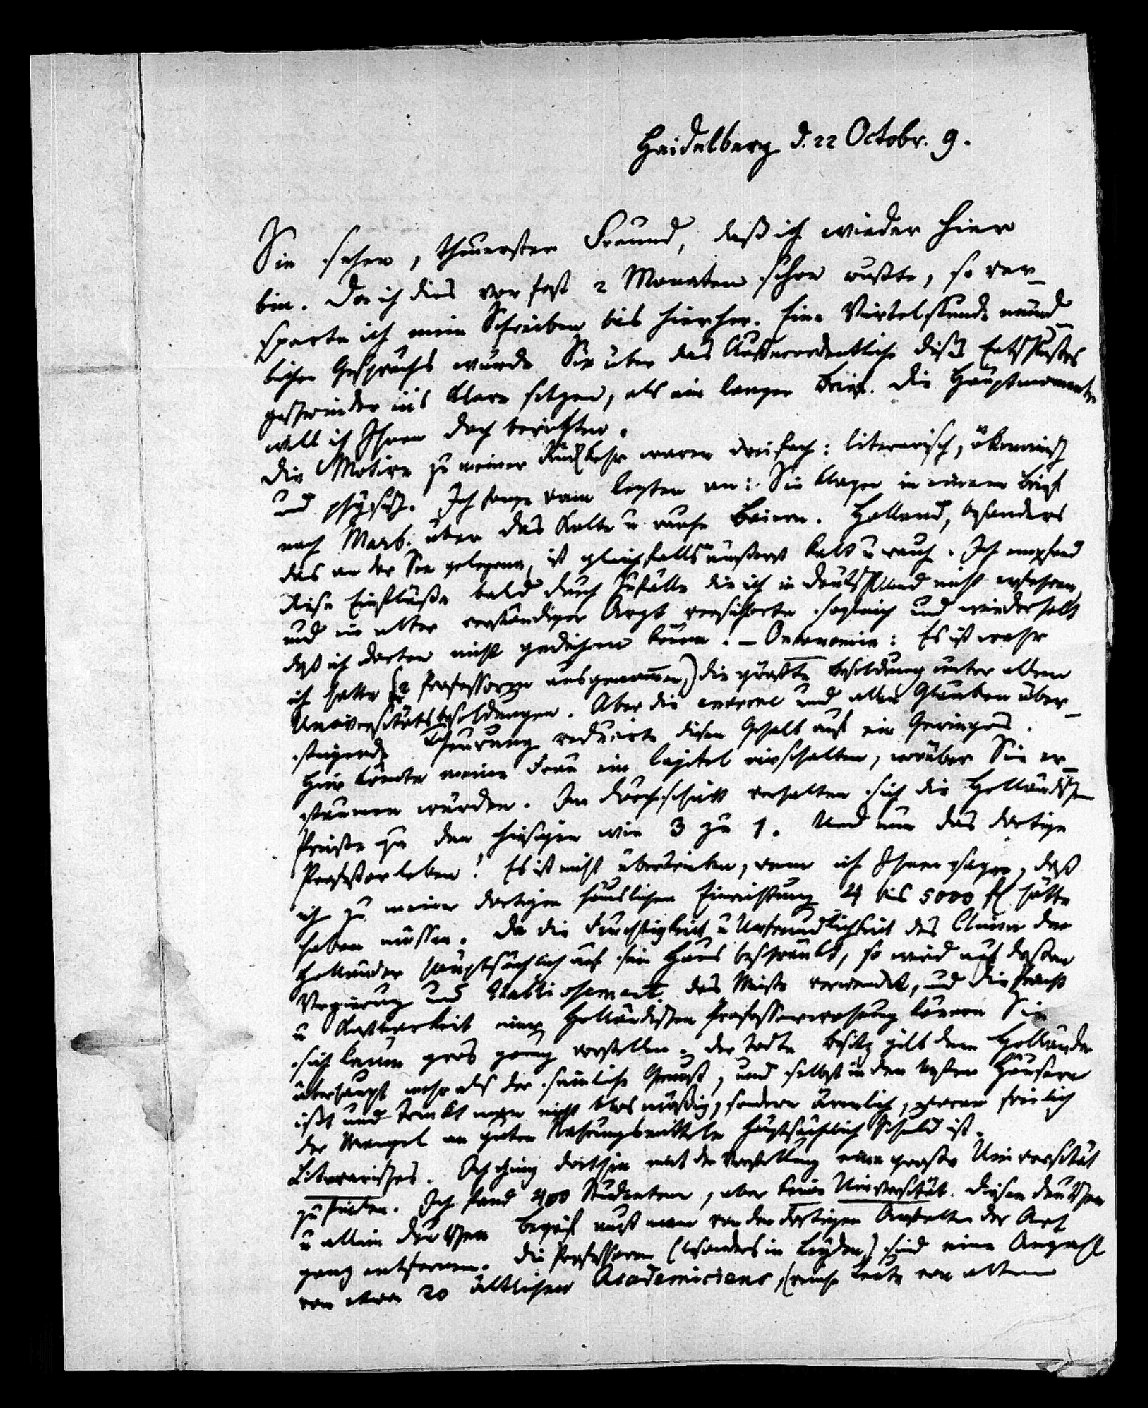 Heidelberg d. 22 Octobr. 9.
Sie sehen, theuerster Freund, daß ich wieder hier
bin. Da ich dies vor fast 2 Monaten schon wußte, so ver-
sparte ich mein Schreiben bis hierher. Eine Viertelstunde münd-
lichen Gesprächs würde Sie über das Außerordentliche dieß Entschlusses
geschwinder ins Klare setzen, als ein langer Brief. Die Hauptmomente
will ich Ihnen doch berichten.
Die Motive zu meiner Rückkehr waren dreifach: literarisch, ökonomisch
und physisch. Ich fange vom lezten an: Sie klagen in einem Briefe
nach Marb. über das kalte u. rauhe Baiern. Holland, besonders
das an der See gelegene, ist gleichfalls äußerst kalt u rauh. Ich empfand
diese Einflüße bald durch Zufälle die ich in Deutschland nicht erfahren,
und ein alter verständiger Arzt versicherte sogleich und wiederholt
daß ich dorten nicht gedeihen könne. – Oekonomie: Es ist wahr
ich hatte (2 Professoren ausgenommen) die größte Besoldung unter allen
Universitätsbesoldungen. Aber die enorme und allen Glauben über-
steigende Theurung reducirte diesen Gehalt auf ein Geringes.
Hier könnte meine Frau ein Capitel einschalten, worüber Sie er-
staunen würden. Im Durchschnitt verhalten sich die Holländischen
Preiße zu den hiesigen wie 3 zu 1. Und nun das dortige
Professorleben! Es ist nicht übertrieben, wenn ich Ihnen sage, daß
ich zu meiner dortigen häuslichen Einrichtung 4 bis 5000 fl. hätte
haben müssen. Da die Feuchtigkeit u Unfreundlichkeit des Clima den
Holländer hauptsächlich auf sein Haus beschränkt, so wird auf dessen
Verzierung und Etablissement das Meiste verwendet, und die Pracht
u Kostbarkeit einer Holländischen Professorwohnung können Sie
sich kaum gros genug vorstellen. Der todte Besitz gilt dem Holländer
überhaupt mehr als der sinnliche Genuß, und selbst in den besten Häusern
ißt und trinkt man nicht blos mäßig, sondern ärmlich, woran freilich
der Mangel an guten Nahrungsmitteln hauptsächlich Schuld ist.
Literarisches. Ich ging dorthin mit der Vorstellung eine große Universität
zu finden. Ich fand 400 Studenten, aber keine Universität. Diesen deutschen
u allein deutschen Begriff muß man von den dortigen Anstalten der Art
ganz entfernen. Die Professoren (besonders in Leyden) sind eine Anzahl
von etwa 20 ältlichen Academiciens, (reiche Leute von altem